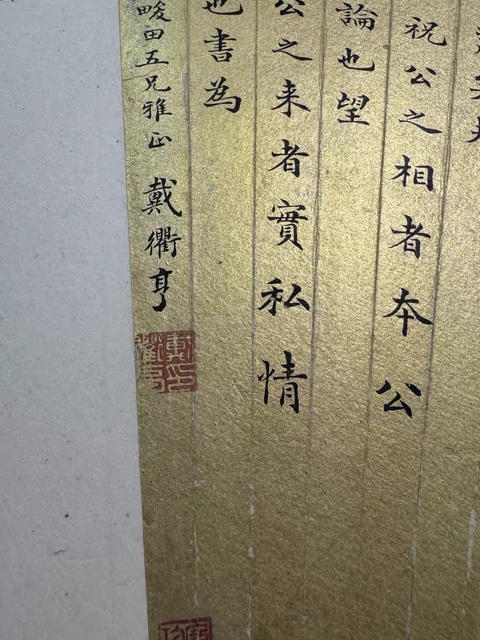 祝公之相者本公
論也望
公之来者實私情
也書為
畯田五兄雅正 戴衢亨